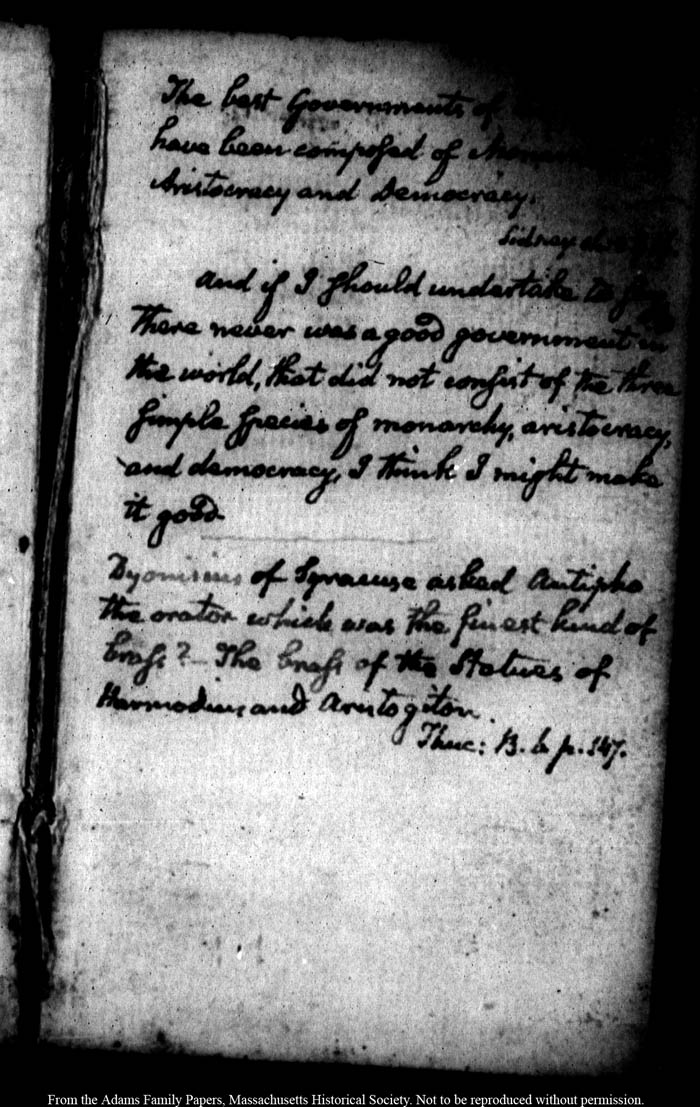 The best Governments of
have been composed of
Aristocracy and Democracy.
Sidney
And if I should undertake to say
there never was a good government in
the world, that did not consist of the three
simple species of monarchy, aristocracy,
and democracy, I think I might make
it good
Dyonisius of Syracuse asked Antipho
the orator which was the finest kind of
brass? The brass of the Statues of
Harmodius and Aristogiton.
Thuc: B. 6 p. 347.
From the Adams Family Papers, Massachusetts Historical Society. Not to be reproduced without permission.